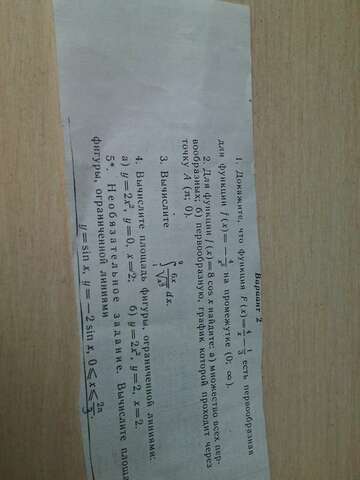 Вариант 2
1. Докажите, что функция F(x) = 4/x − 1/3 есть первообразная
для функции f(x) = − 4/x² на промежутке (0; ∞).
2. Для функции f(x) = 8 cos x найдите: а) множество всех пер-
вообразных; б) первообразную, график которой проходит через
точку A (π; 0).
3. Вычислите ∫ 6x/√x³ dx.
4. Вычислите площадь фигуры, ограниченной линиями:
а) y = 2x², y = 0, x = 2; б) y = 2x², y = 2, x = 2.
5*. Необязательное задание. Вычислите площа
фигуры, ограниченной линиями
y = sin x, y = −2 sin x, 0 ⩽ x ⩽ 2π/3.